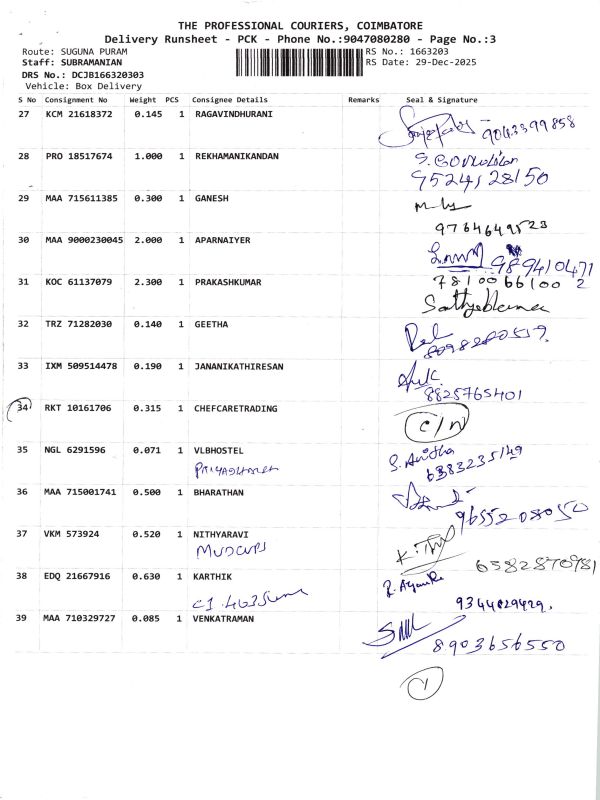 THE PROFESSIONAL COURIERS, COIMBATORE
Delivery Runsheet - PCK - Phone No.:9047080280 - Page No.:3
Route: SUGUNA PURAM RS No.: 1663203
Staff: SUBRAMANIAN RS Date: 29-Dec-2025
DRS No.: DCJB166320303
Vehicle: Box Delivery
S No Consignment No Weight PCS Consignee Details Remarks Seal & Signature
27 KCM 21618372 0.145 1 RAGAVINDHURANI
9043399858
28 PRO 18517674 1.000 1 REKHAMANIKANDAN
9524128150
29 MAA 715611385 0.300 1 GANESH
9764649523
30 MAA 9000230045 2.000 1 APARNAIYER
9894104712
31 KOC 61137079 2.300 1 PRAKASHKUMAR 7810066100
32 TRZ 71282030 0.140 1 GEETHA
33 IXM 509514478 0.190 1 JANANIKATHIRESAN
8825765401
34 RKT 10161706 0.315 1 CHEFCARETRADING
C/N
35 NGL 6291596 0.071 1 VLBHOSTEL S. Anitha
6383235149
36 MAA 715001741 0.500 1 BHARATHAN
9655208050
37 VKM 573924 0.520 1 NITHYARAVI
MUDCUPS 6582870981
38 EDQ 21667916 0.630 1 KARTHIK
9344029429.
39 MAA 710329727 0.085 1 VENKATRAMAN
8903656550
1